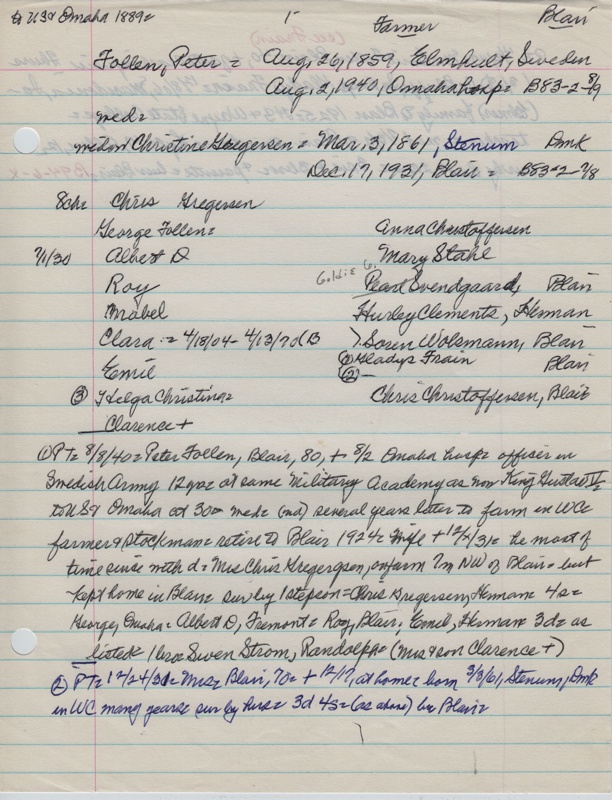 to USA Omaha 1889= 1- Farmer Blair
Follen, Peter = Aug, 26, 1859, Elmhult, Sweden
Aug, 2, 1940, Omaha hosp= B83-2-8/9
med=
widow Christine Gregersen = Mar. 3, 1861, Stenum Dmk
Dec, 17, 1931, Blair = B83=2-7/8
8ch= Chris Gregersen
George Follen= Anna Christoffersen
7/1/30 Albert D Mary Stahl
Goldie G.
Roy Pearl Svendgaard, Blair
Mabel Hurley Clements, Herman
Clara := 4/18/04- 4/13/70(B ) Soren Wolsmann, Blair
Emil (1) Gladys Frain Blair
(2) -
(3) Helga Christina= Chris Christoffersen, Blair
Clarence +
(1) PT= 8/8/40= Peter Follen, Blair, 80, + 8/2 Omaha hosp= officer in
Swedish Army 12 yrs= at same Military Academy as now King Gustav V=
to USA Omaha at 30= med= (nd) several years later to farm in WC=
farmer & stockman= retire to Blair 1924= Wife + 12/ /31= he most of
time since with d= Mrs Chris Gregergson, on farm 7m NW of Blair= but
kept home in Blair= sur by 1 stepson= Chris Gregersen, Herman= 4s=
George, Omaha= Albert D, Fremont= Roy, Blair, Emil, Herman= 3d= as
listed= 1 bro= Swen Strom, Randolph= (Mrs & son Clarence +)
(2) PT= 12/24/31= Mrs= Blair, 70= + 12/17, at home= born 3/3/61, Stenum, Dmk
in WC many years= sur by hus= 3d 4s= (as above) bu Blair=